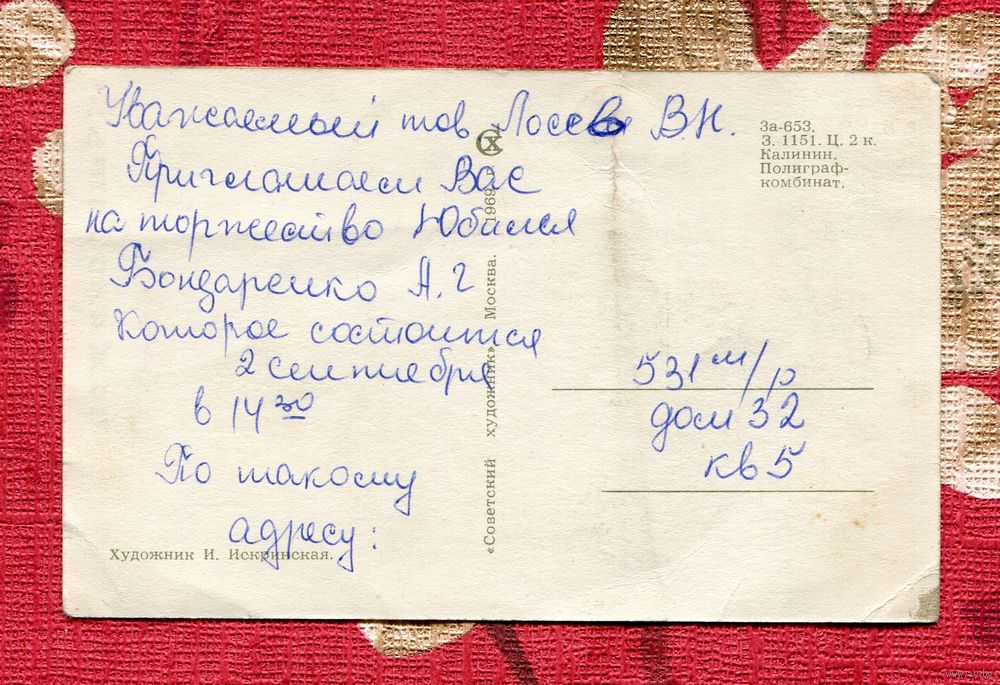 Уважаемый тов Лосев В.Н.
Приглашаем Вас
на торжество Юбилея
Бондаренко А.Г
Которое состоится
2 сентября
в 14 30
По такому
адресу:
Художник И. Искринская.
«Советский художник» Москва. 1969
За-653.
З. 1151. Ц. 2 к.
Калинин.
Полиграф-
комбинат.
531 м/р
дом 32
кв 5